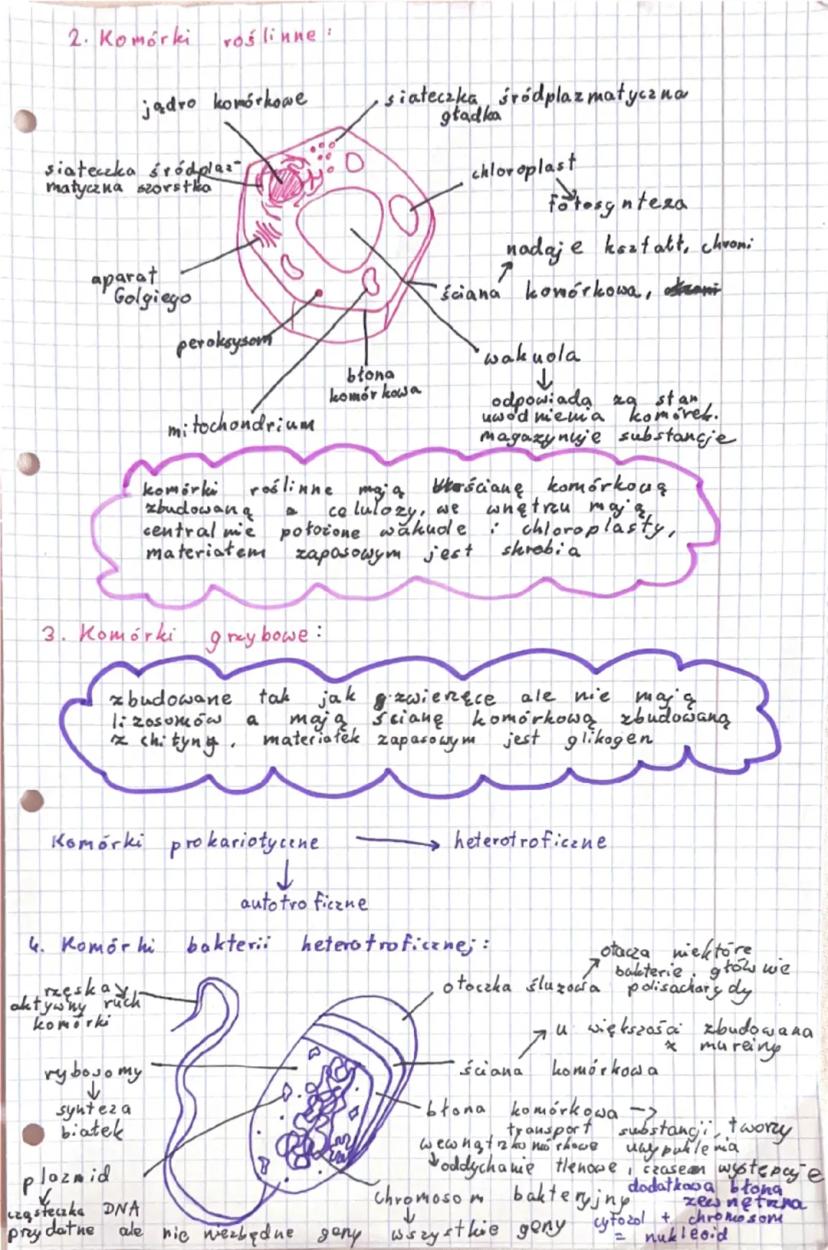 2. Komórki roślinne:
jądro komórkowe
siateczka śródplazmatyczna
gładka
siateczka śródplaz-
matyczna szorstka
chloroplast
fotosynteza
nadaje kształt, chroni
aparat
Golgiego
ściana komórkowa,
peroksysom
wakuola
błona
komórkowa
odpowiada za stan
uwodnienia komórek.
magazynuje substancje
mitochondrium
komórki roślinne mają ścianę komórkową
zbudowaną z celulozy, we wnętrzu mają
centralnie położone wakuole i chloroplasty,
materiałem zapasowym jest skrobia
3. Komórki grzybowe:
zbudowane tak jak zwierzęce ale nie mają
lizosomów a mają ścianę komórkową zbudowaną
z chityny. materiałek zapasowym jest glikogen
Komórki prokariotyczne → heterotroficzne
↓
autotroficzne
4. Komórki bakterii heterotroficznej:
otacza niektóre
bakterie, głównie
polisacharydy
rzęska
aktywny ruch
komórki
otoczka śluzowa
u większości zbudowana
z mureiny
rybosomy
ściana komórkowa
↓
synteza
białek
błona komórkowa →
transport substancji, tworzy
wewnątrzkomórkowe uwypuklenia
↓ oddychanie tlenowe, czasem występuje
dodatkowa błona
zewnętrzna
plazmid
cząsteczka DNA
przydatne ale nie niezbędne geny
chromosom bakteryjny
↓
wszystkie geny
cytozol + chromosom
= nukleoid